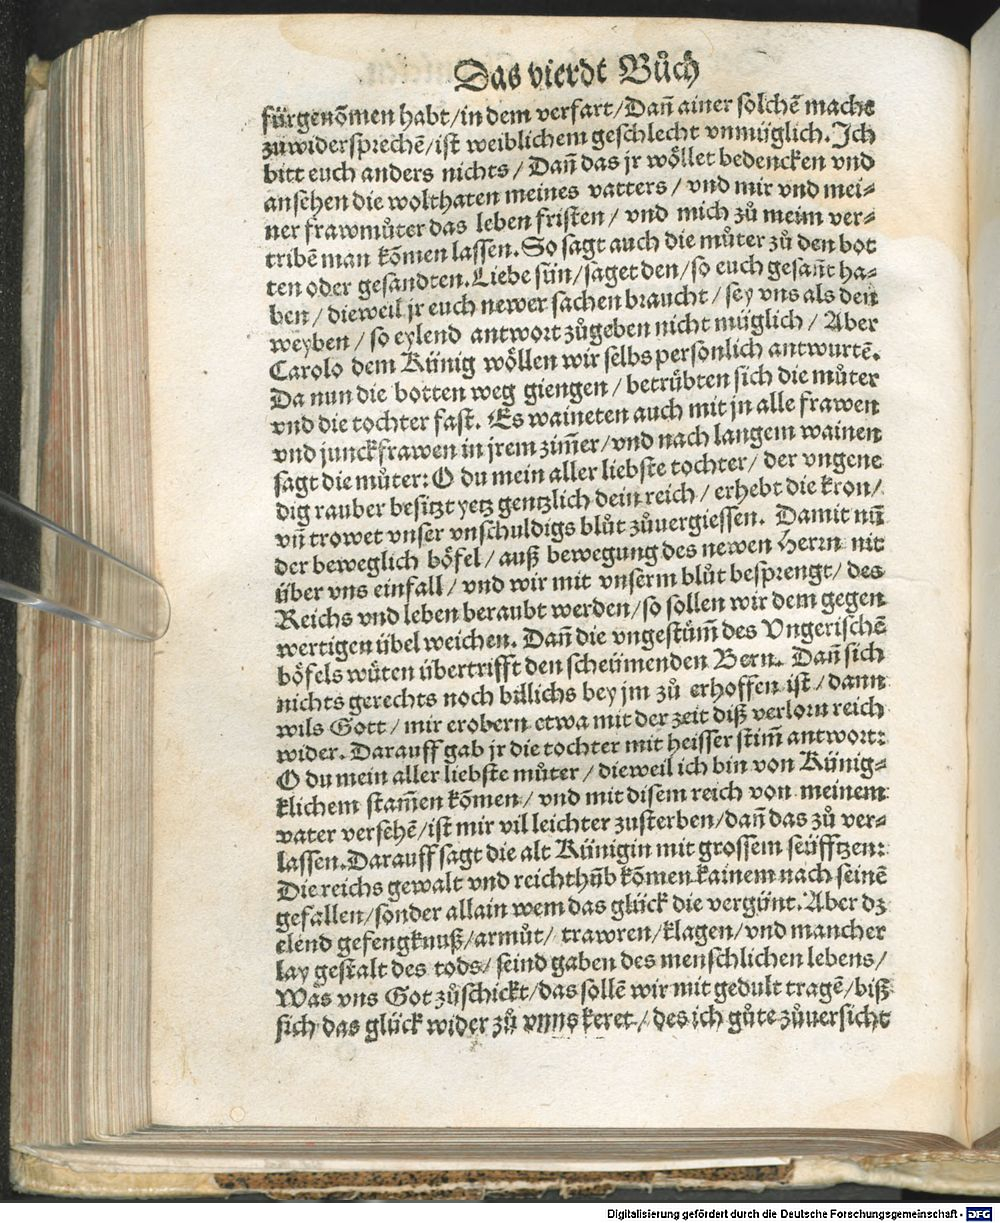 Das vierdt Bůch
fürgenõmen habt/in dem verfart/Dañ ainer solchẽ macht
zuwidersprechẽ/ist weiblichem geschlecht vnmüglich. Ich
bitt euch anders nichts/Dañ das jr wöllet bedencken vnd
ansehen die wolthaten meines vatters/vnd mir vnd mei⸗
ner frawmůter das leben fristen/vnd mich zů meim ver⸗
tribẽ man kõmen lassen. So sagt auch die můter zů den bot
ten oder gesandten. Liebe sün/saget den/so euch gesañt ha⸗
ben/dieweil jr euch newer sachen braucht/sey vns als den
weyben/so eylend antwort zůgeben nicht müglich/Aber
Carolo dem Künig wöllen wir selbs personlich antwurtẽ.
Da nun die botten weg giengen/betrübten sich die můter
vnd die tochter fast. Es waineten auch mit jn alle frawen
vnd junckfrawen in jrem zim̃er/vnd nach langem wainen
sagt die můter: O du mein aller liebste tochter/der vngene
dig rauber besitzt yetz gentzlich dein reich/erhebt die kron/
vñ trowet vnser vnschuldigs blůt zůuergiessen. Damit nũ
der beweglich böfel/auß bewegung des newen Herrn nit
über vns einfall/vnd wir mit vnserm blůt besprengt/des
Reichs vnd leben beraubt werden/so sollen wir dem gegen
wertigen übel weichen. Dañ die vngestüm̃ des Vngerischẽ
böfels wůten übertrifft den scheümenden Bern. Dañ sich
nichts gerechts noch billichs bey jm zů erhoffen ist/dann
wils Gott/mir erobern etwa mit der zeit diß verlorn reich
wider. Darauff gab jr die tochter mit heisser stim̃ antwort:
O du mein aller liebste můter/dieweil ich bin von Künig⸗
klichem stam̃en kõmen/vnd mit disem reich von meinem
vater versehẽ/ist mir vil leichter zusterben/dañ das zů ver⸗
lassen. Darauff sagt die alt Künigin mit grossem seüfftzen:
Die reichs gewalt vnd reichthũb kõmen kainem nach seinẽ
gefallen/sonder allain wem das glück die vergünt. Aber dz
elend gefengknuß/armůt/trawren/klagen/vnd mancher
lay gestalt des tods/seind gaben des menschlichen lebens/
Was vns Got zůschickt/das sollẽ wir mit gedult tragẽ/biß
sich das glück wider zů vnns keret/des ich gůte zůuersicht
Digitalisierung gefördert durch die Deutsche Forschungsgemeinschaft - DFG